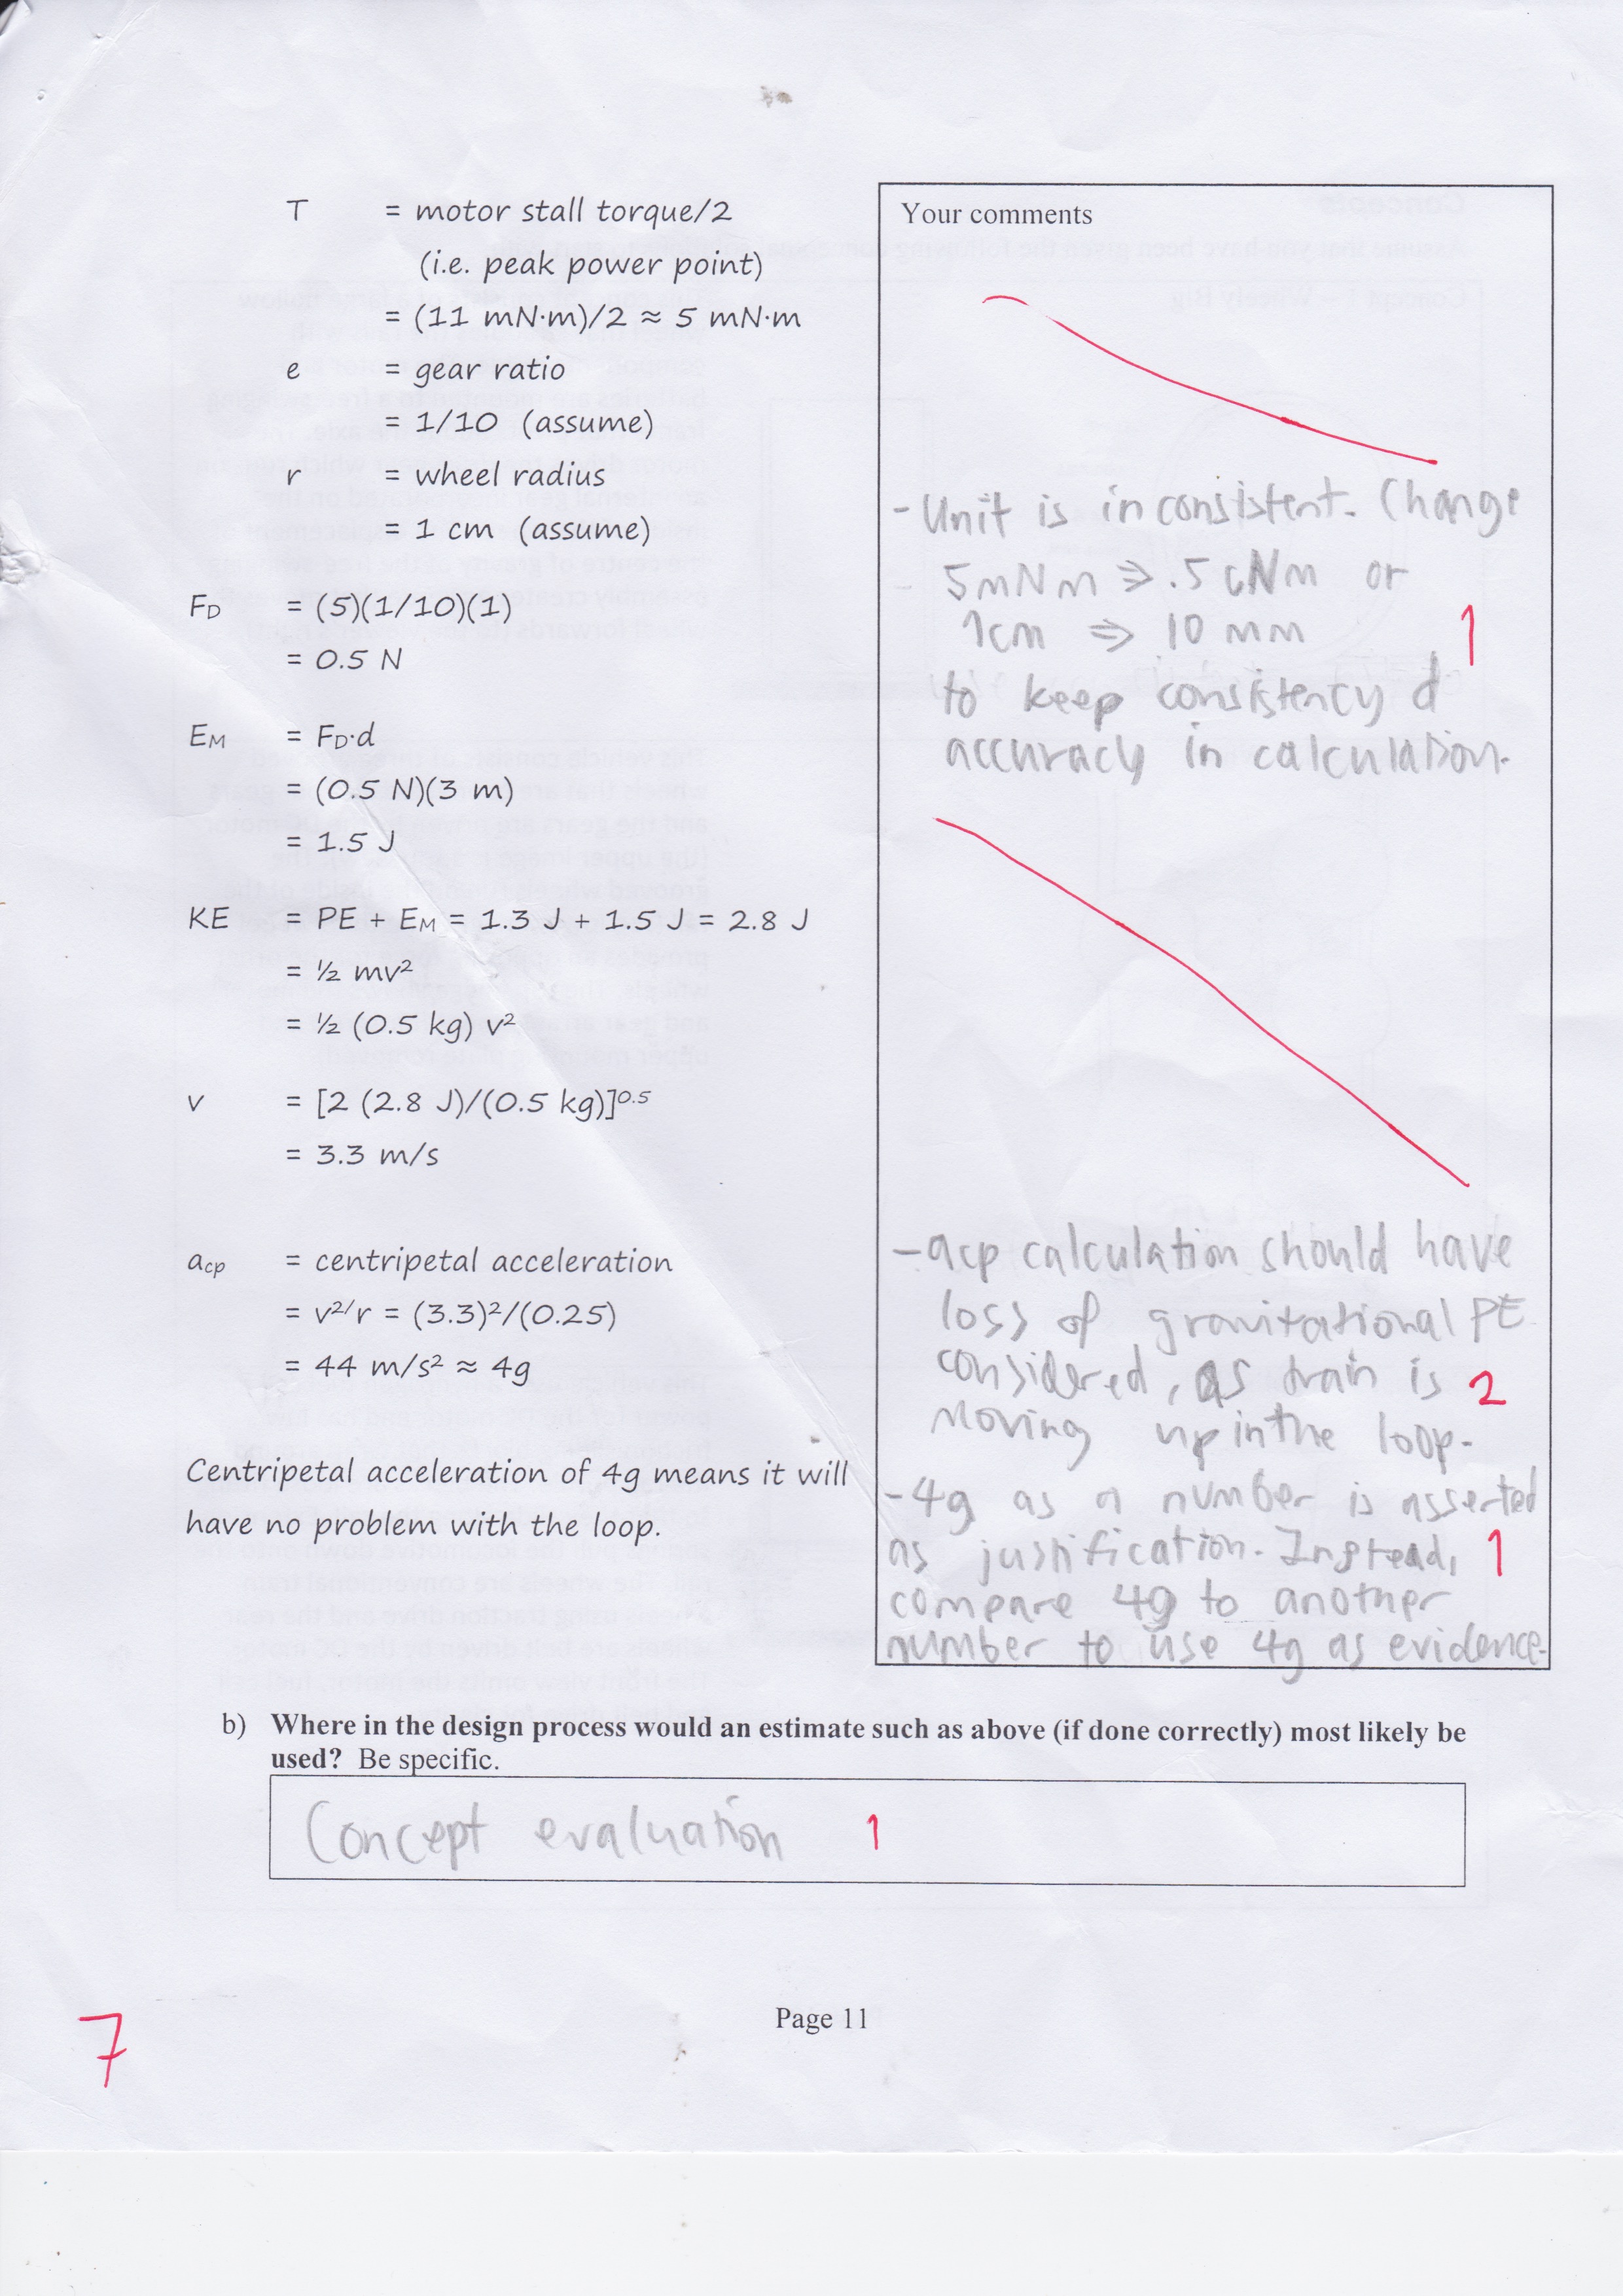 T = motor stall torque/2
(i.e. peak power point)
= (11 mN·m)/2 ≈ 5 mN·m
e = gear ratio
= 1/10 (assume)
r = wheel radius
= 1 cm (assume)
FD = (5)(1/10)(1)
= 0.5 N
EM = FD·d
= (0.5 N)(3 m)
= 1.5 J
KE = PE + EM = 1.3 J + 1.5 J = 2.8 J
= ½ mv²
= ½ (0.5 kg) v²
v = [2 (2.8 J)/(0.5 kg)]^0.5
= 3.3 m/s
acp = centripetal acceleration
= v²/r = (3.3)²/(0.25)
= 44 m/s² ≈ 4g
Centripetal acceleration of 4g means it will
have no problem with the loop.
Your comments
- Unit is inconsistent. Change
5mNm ⇒ .5 cNm or
1cm ⇒ 10 mm 1
to keep consistency &
accuracy in calculation.
- acp calculation should have
loss of gravitational PE
considered, as train is 2
moving up in the loop.
- 4g as a number is asserted
as justification. Instead, 1
compare 4g to another
number to use 4g as evidence.
b) Where in the design process would an estimate such as above (if done correctly) most likely be
used? Be specific.
Concept evaluation 1
Page 11
7